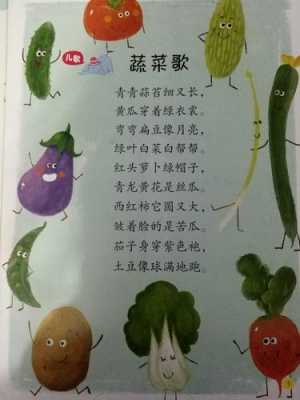 儿歌
蔬菜歌
青青蒜苔细又长，
黄瓜穿着绿衣裳。
弯弯扁豆像月亮，
绿叶白菜白帮帮。
红头萝卜绿帽子，
青龙黄花是丝瓜。
西红柿它圆又大，
皱着脸的是苦瓜。
茄子身穿紫色袍，
土豆像球满地跑。